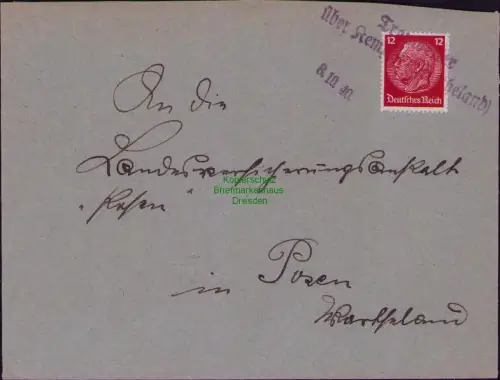 über Kem
8. 10. 40.
12 12
Deutsches Reich
An die
Landesversicherungsanstalt
Kopierschutz
Briefmarkenhaus
Dresden
"Posen"
in Posen
Wartheland